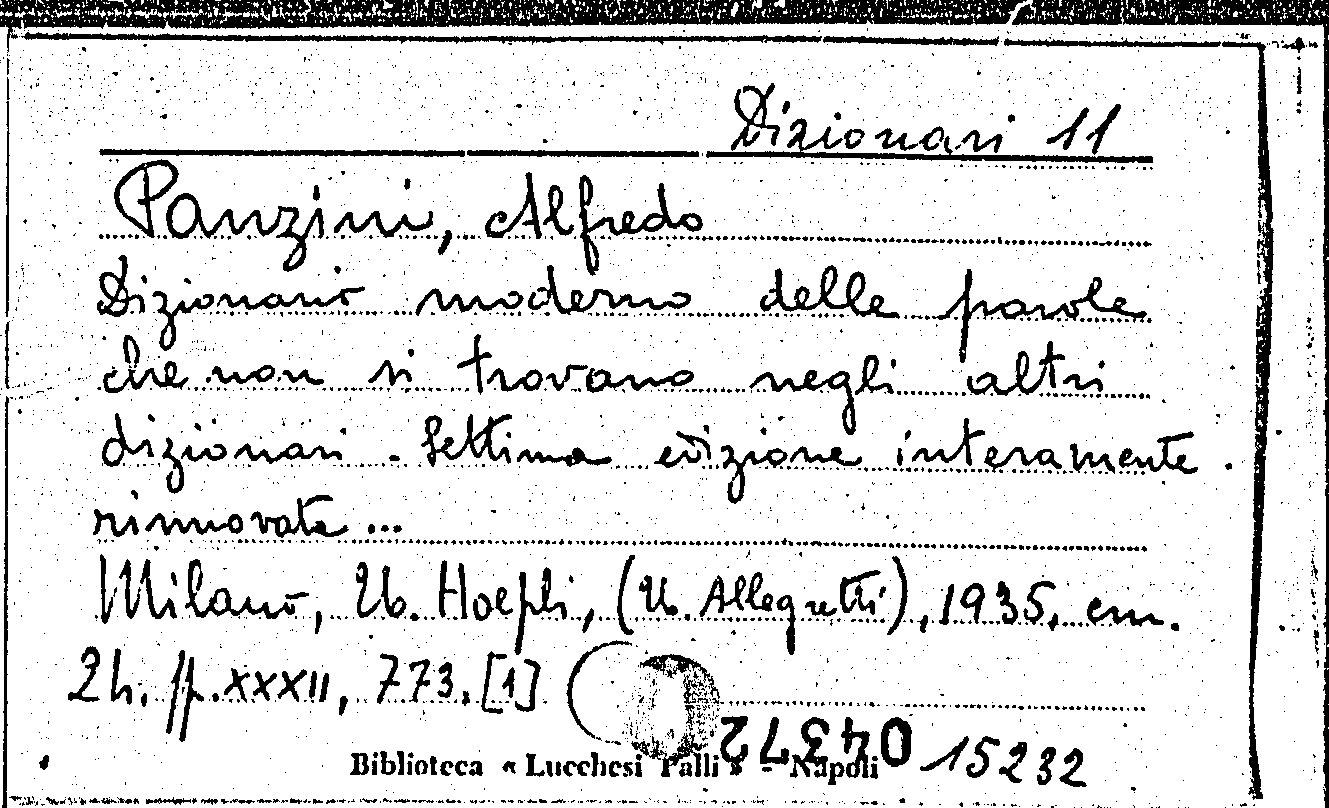 Dizionari 11
Panzini, Alfredo
Dizionario moderno delle parole
che non si trovano negli altri
dizionari. Settima edizione interamente
rinnovata...
Milano, U. Hoepli, (U. Allegretti), 1935, cm.
24. pp. XXXII, 773, [1]
Biblioteca « Lucchesi Palli » - Napoli 15232